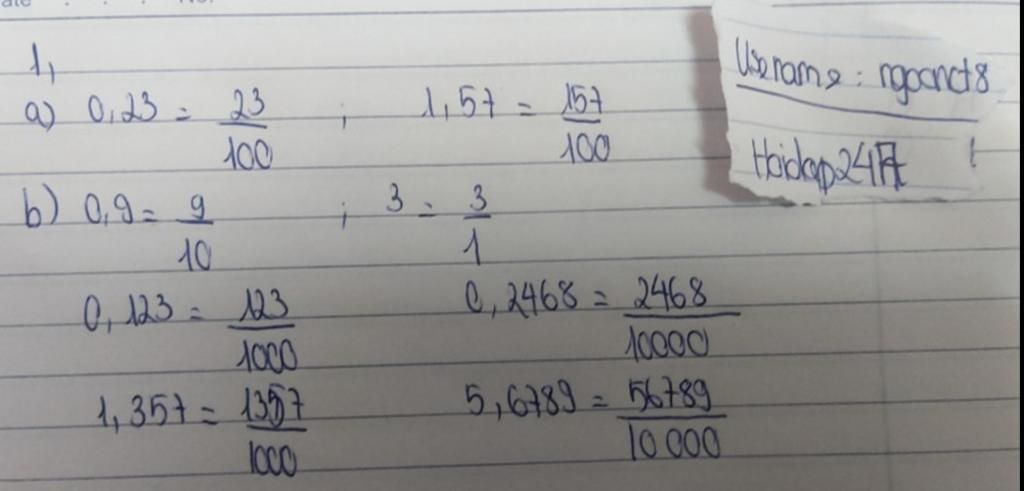 1,
a) 0,23 = 23/100 ; 1,57 = 157/100
b) 0,9 = 9/10 ; 3 = 3/1
0,123 = 123/1000 0,2468 = 2468/10000
1,357 = 1357/1000 5,6789 = 56789/10 000
Username: ngocnct8
Hoidap247